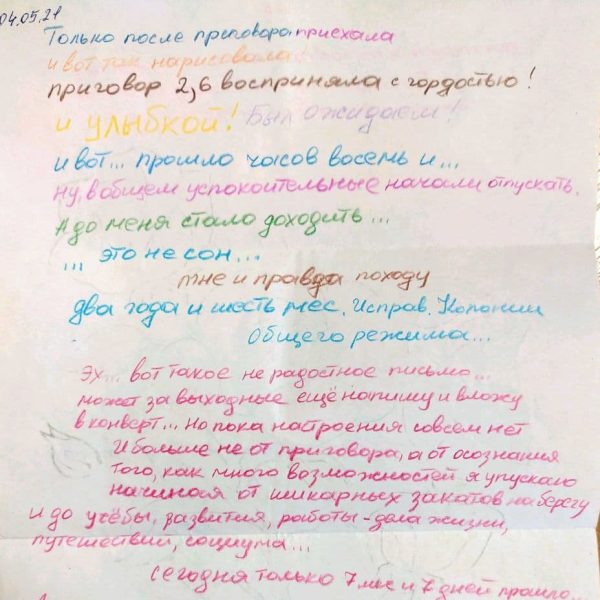 04.05.21
Только после приговора приехала
и вот так нарисовала!
приговор 2,6 восприняла с гордостью!
и улыбкой! Был ожидаем!
и вот... прошло часов восемь и...
ну, в общем успокоительные начали отпускать.
А до меня стало доходить...
... это не сон...
мне и правда походу
два года и шесть мес. Исправ. Колонии
Общего режима...
Эх... вот такое не радостное письмо...
может за выходные ещё напишу и вложу
в конверт... Но пока настроения совсем нет
И больше не от приговора, а от осознания
того, как много возможностей я упускаю
начиная от шикарных закатов на берегу
и до учёбы, развития, работы-дела жизни,
путешествий, социума...
Сегодня только 7 мес и 7 дней прошло...